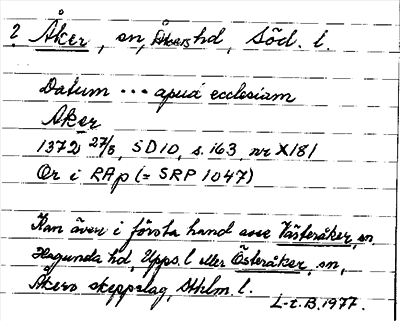 ? Åker, sn, Åkers hd, Söd. l.
Datum ... apud ecclesiam
Aker
1372 27/8, SD10, s. 163, nr X181
Or i RAp (= SRP 1047)
Kan även i första hand avse Västeråker, sn
Hagunda hd, Upps. l eller Österåker, sn,
Åkers skeppslag, Sthlm. l.
L-t. B. 1977.